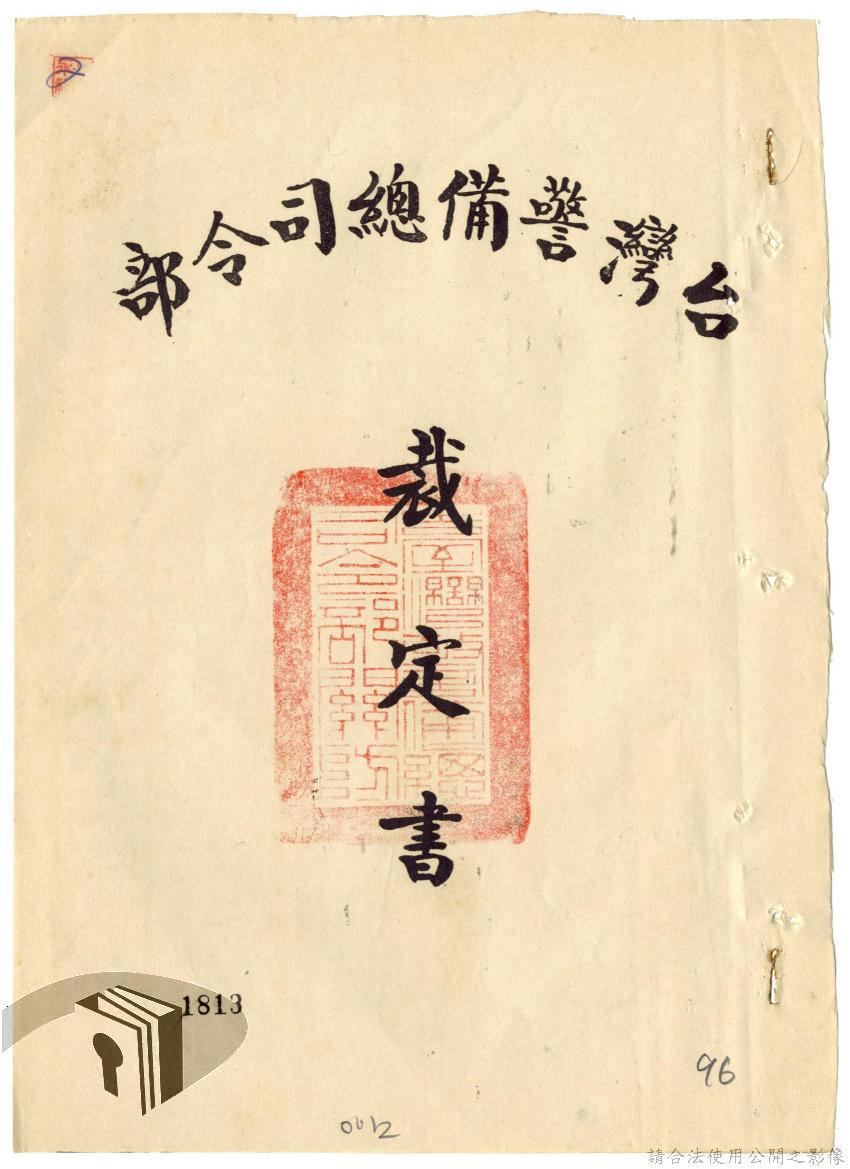 台灣警備總司令部
裁定書
1813
96
請合法使用公開之影像